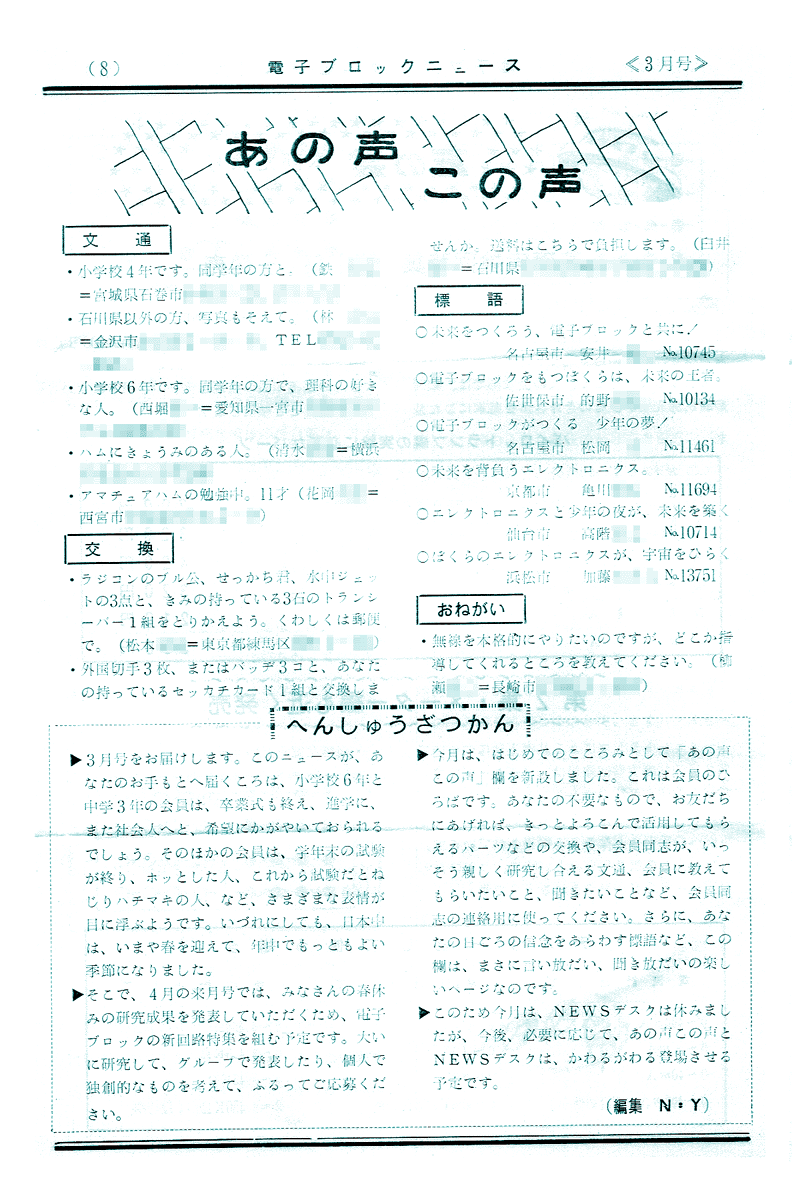 (8)
電子ブロックニュース
≪3月号≫
あの声
この声
文　通
・小学校4年です。同学年の方と。(鉄
=宮城県石巻市
・石川県以外の方、写真もそえて。(林
=金沢市　TEL
・小学校6年です。同学年の方で、理科の好き
な人。(西堀　=愛知県一宮市
・ハムにきょうみのある人。(清水　=横浜
・アマチュアハムの勉強中。11才(花岡　=
西宮市　)
交　換
・ラジコンのブル公、せっかち君、水中ジェッ
トの3点と、きみの持っている3石のトランシ
ーバー1組をとりかえよう。くわしくは郵便
で。(松本　=東京都練馬区　)
・外国切手3枚、またはバッヂ3コと、あなた
の持っているセッカチカード1組と交換しま
せんか。送料はこちらで負担します。(臼井
=石川県　)
標　語
○未来をつくろう、電子ブロックと共に!
名古屋市　安井　№10745
○電子ブロックをもつぼくらは、未来の王者。
佐世保市　的野　№10134
○電子ブロックがつくる　少年の夢!
名古屋市　松岡　№11461
○未来を背負うエレクトロニクス。
京都市　亀川　№11694
○エレクトロニクスと少年の夜が、未来を築く
仙台市　高階　№10714
○ぼくらのエレクトロニクスが、宇宙をひらく
浜松市　加藤　№13751
おねがい
・無線を本格的にやりたいのですが、どこか指
導してくれるところを教えてください。(柳
瀬　=長崎市　)
へんしゅうざつかん
▶3月号をお届けします。このニュースが、あ
なたのお手もとへ届くころは、小学校6年と
中学3年の会員は、卒業式も終え、進学に、
また社会人へと、希望にかがやいておられる
でしょう。そのほかの会員は、学年末の試験
が終り、ホッとした人、これから試験だとね
じりハチマキの人、など、さまざまな表情が
目に浮ぶようです。いづれにしても、日本中
は、いまや春を迎えて、年中でもっともよい
季節になりました。
▶そこで、4月の来月号では、みなさんの春休
みの研究成果を発表していただくため、電子
ブロックの新回路特集を組む予定です。大い
に研究して、グループで発表したり、個人で
独創的なものを考えて、ふるってご応募くだ
さい。
▶今月は、はじめてのこころみとして「あの声
この声」欄を新設しました。これは会員のひ
ろばです。あなたの不要なもので、お友だち
にあげれば、きっとよろこんで活用してもら
えるパーツなどの交換や、会員同志が、いっ
そう親しく研究し合える文通、会員に教えて
もらいたいこと、聞きたいことなど、会員同
志の連絡用に使ってください。さらに、あな
たの日ごろの信念をあらわす標語など、この
欄は、まさに言い放だい、聞き放だいの楽し
いページなのです。
▶このため今月は、NEWSデスクは休みまし
たが、今後、必要に応じて、あの声この声と
NEWSデスクは、かわるがわる登場させる
予定です。
(編集　N・Y)